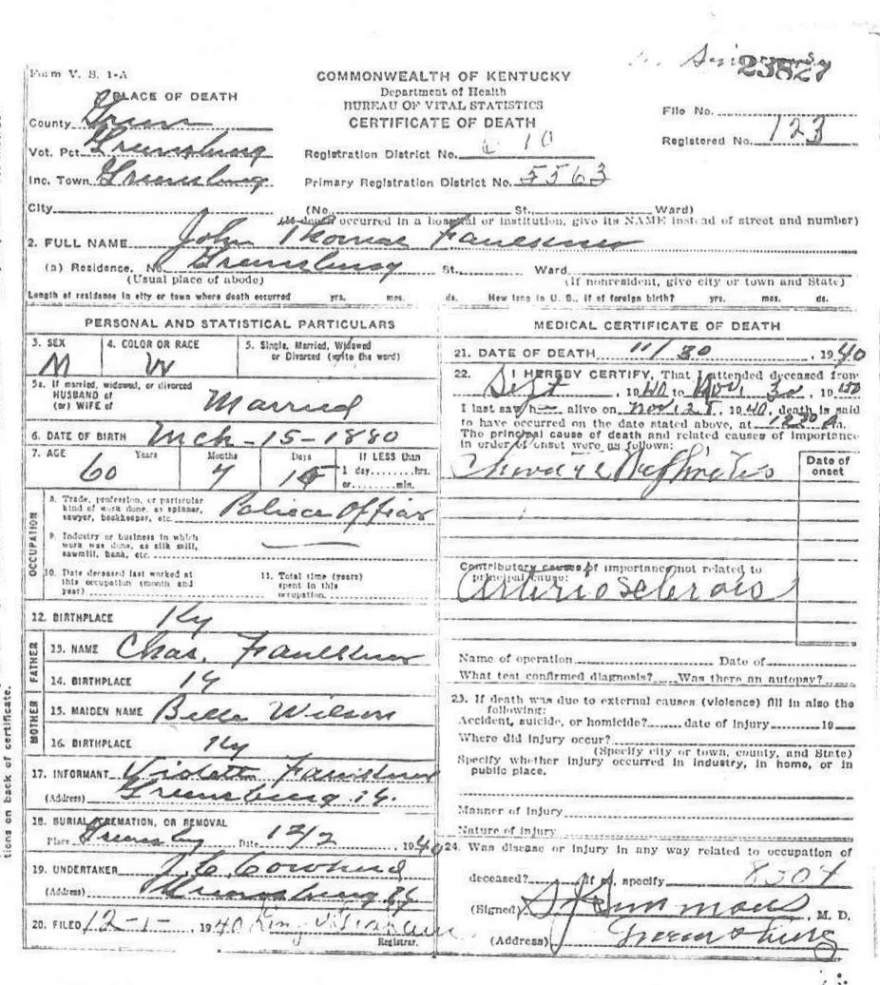 23827
Form V. S. 1-A
COMMONWEALTH OF KENTUCKY
Department of Health
BUREAU OF VITAL STATISTICS
CERTIFICATE OF DEATH
File No.
Registered No. 123
PLACE OF DEATH
County Green
Vot. Pct. Greensburg
Inc. Town Greensburg
City
Registration District No. 610
Primary Registration District No. 5563
(No. St. Ward)
(If death occurred in a hospital or institution, give its NAME instead of street and number)
2. FULL NAME John Thomas Faulkner
(a) Residence. No. Greensburg St. Ward
(Usual place of abode) (If nonresident, give city or town and State)
Length of residence in city or town where death occurred yrs. mos. ds. How long in U. S., if of foreign birth? yrs. mos. ds.
PERSONAL AND STATISTICAL PARTICULARS
3. SEX M
4. COLOR OR RACE W
5. Single, Married, Widowed or Divorced (write the word)
5a. If married, widowed, or divorced
HUSBAND of
(or) WIFE of Married
6. DATE OF BIRTH Mch-15-1880
7. AGE Years Months Days If LESS than
60 7 15 1 day hrs.
or min.
OCCUPATION
8. Trade, profession, or particular
kind of work done, as spinner,
sawyer, bookkeeper, etc. Police
9. Industry or business in which
work was done, as silk mill,
sawmill, bank, etc.
10. Date deceased last worked at
this occupation (month and
year)
11. Total time (years)
spent in this
occupation
12. BIRTHPLACE Ky
FATHER
13. NAME Chas. Faulkner
14. BIRTHPLACE Ky
MOTHER
15. MAIDEN NAME Belle Wilson
16. BIRTHPLACE Ky
17. INFORMANT Faulkner
(Address) Greensburg Ky.
18. BURIAL, CREMATION, OR REMOVAL
Place Date 12/2, 1940
19. UNDERTAKER J. C. Cowherd
(Address) Greensburg Ky
20. FILED 12-1-, 1940
Registrar.
MEDICAL CERTIFICATE OF DEATH
21. DATE OF DEATH 11/30, 1940
22. I HEREBY CERTIFY, That I attended deceased from
Sept, 1940 to Nov. 30, 19
I last saw h alive on Nov. 1940, death is said
to have occurred on the date stated above, at
The principal cause of death and related causes of importance
in order of onset were as follows:
Date of
onset
Contributory causes of importance not related to
principal cause:
Name of operation Date of
What test confirmed diagnosis? Was there an autopsy?
23. If death was due to external causes (violence) fill in also the
following:
Accident, suicide, or homicide? date of injury 19
Where did injury occur?
(Specify city or town, county, and State)
Specify whether injury occurred in industry, in home, or in
public place.
Manner of injury
Nature of injury
24. Was disease or injury in any way related to occupation of
deceased? If so, specify
(Signed) Simmons, M. D.
(Address) Greensburg
tions on back of certificate.